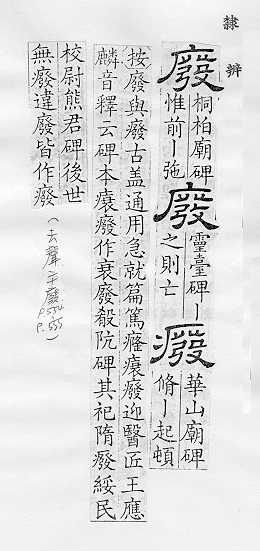 隸辨
廢 桐柏廟碑
惟前丨弛
廢 靈臺碑丨
之則亡
癈 華山廟碑
脩丨起頓
按廢與癈古盖通用急就篇篤癃瘨廢迎醫匠王應
麟音釋云碑本瘨癈作衰廢殽阬碑其祀隋癈綏民
校尉熊君碑後世
無癈違廢皆作癈
(去聲 廢
P554
P.555)